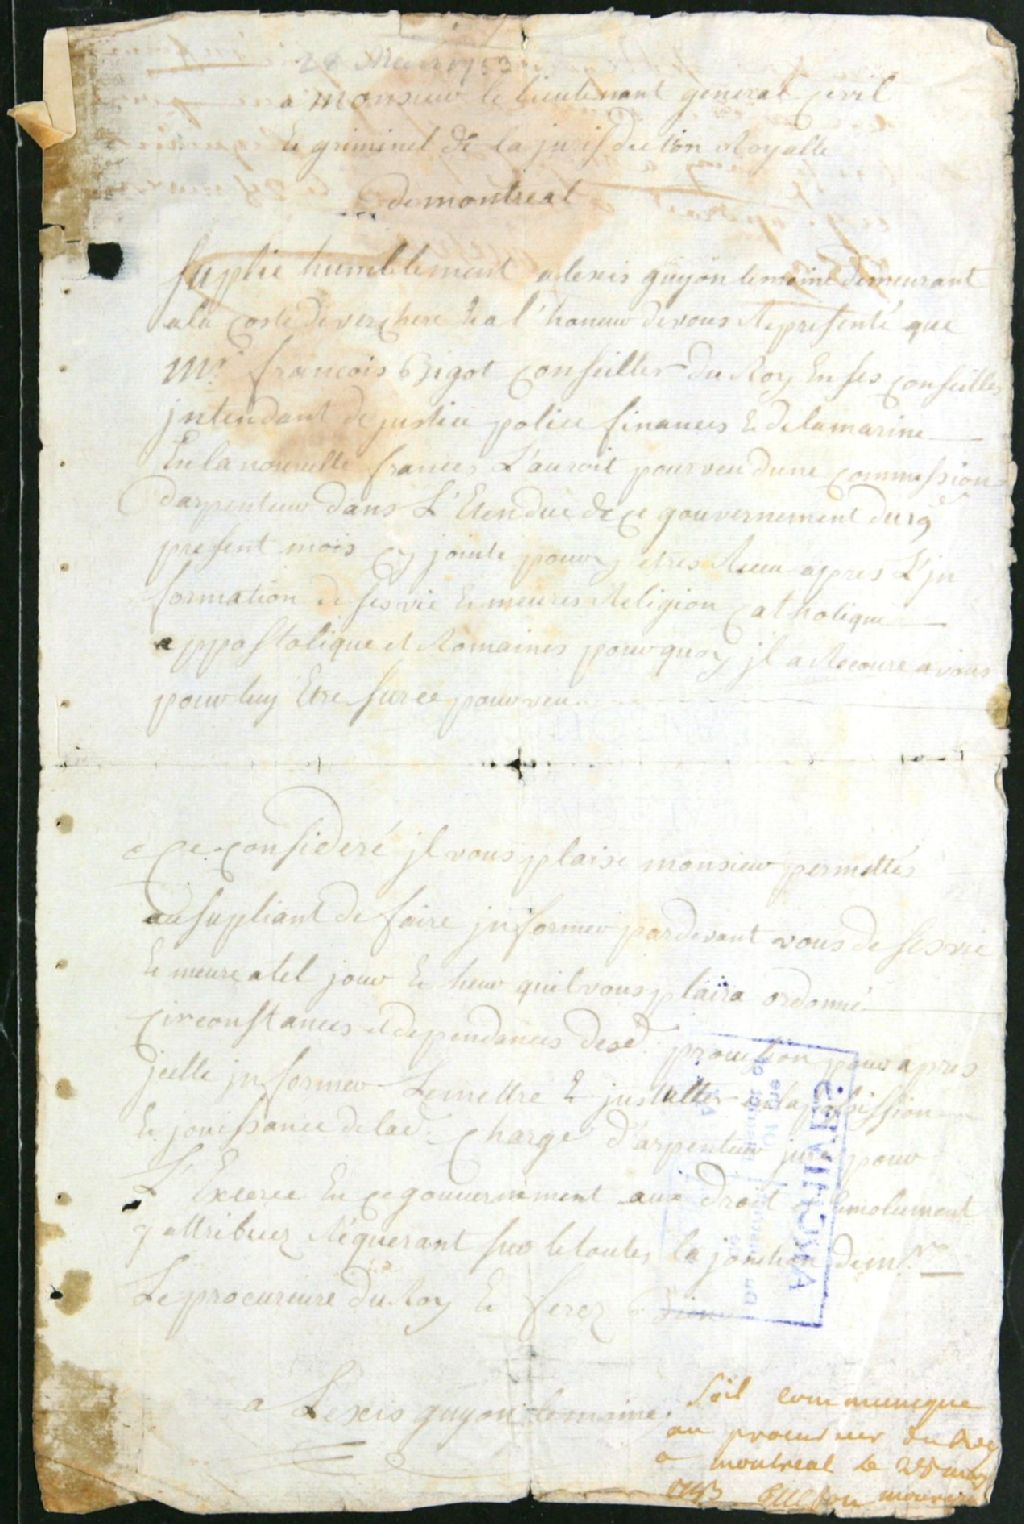 28 Mars 1753
a Monsieur le lieutenant general Civil
Et griminel de la jurisdiction Royalle
de montreal
suplie humblement alexis guyon lemoine demeurant
a la Coste de verchere Et a l'honeur de vous Representé que
Mr. francois Bigot Conseiller du Roy En ses Conseilles
jntendant de justice police finances Et de la marine
En la nouvelle france L'auroit pourveu dune Commission
darpenteur dans L'Etendue de Ce gouvernement du 19e
present mois Cy jointe pour y etres Receu apres L'jn
formation de ses vie Et meures Religion Catholique
appostolique et Romaines pourquoy jl a Recoure a vous
pour luy Etre sur ce pourveu
Ce Consideré jl vous plaise monsieur permettes
au supliant de faire jnformer pardevant vous de ses vie
Et meure a tel jour Et heur quil vous plaira ordonné
Circonstances et dependances desd. pour apres
jcelle jnformer Lemettre Et justaller a la possission
Et jouissance de lad. Charge d'arpenteur juré pour
L'Exerce En Ce gouvernement aux droit Et Emolument
y attribuez Réquerant sur le toutes la jonction de mr.
Le procureure du Roy Et ferez Bien
alexis guyon lemoine
soit communique
au procureur du Roy
a montreal le 28 mars
1753
ARCHIVES